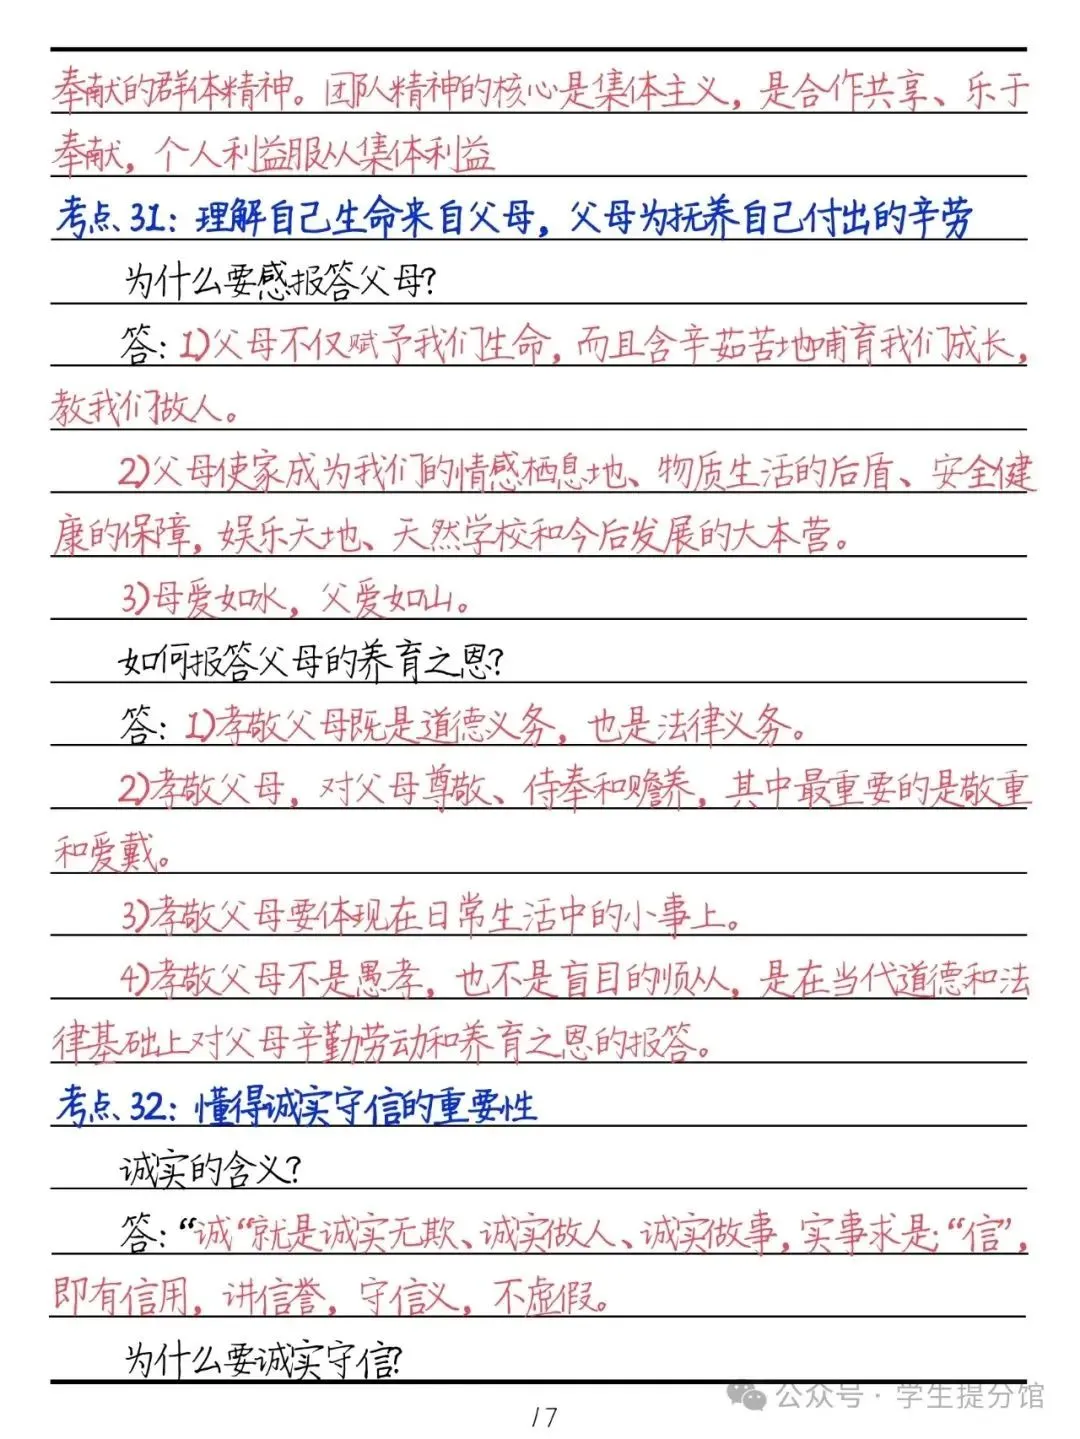 奉献的群体精神。团队精神的核心是集体主义，是合作共享、乐于
奉献，个人利益服从集体利益
考点31：理解自己生命来自父母，父母为抚养自己付出的辛劳
为什么要感报答父母?
答：1)父母不仅赋予我们生命，而且含辛茹苦地哺育我们成长，
教我们做人。
2)父母使家成为我们的情感栖息地、物质生活的后盾、安全健
康的保障，娱乐天地、天然学校和今后发展的大本营。
3)母爱如水，父爱如山。
如何报答父母的养育之恩?
答：1)孝敬父母既是道德义务，也是法律义务。
2)孝敬父母，对父母尊敬、侍奉和赡养，其中最重要的是敬重
和爱戴。
3)孝敬父母要体现在日常生活中的小事上。
4)孝敬父母不是愚孝，也不是盲目的顺从，是在当代道德和法
律基础上对父母辛勤劳动和养育之恩的报答。
考点32：懂得诚实守信的重要性
诚实的含义?
答：“诚“就是诚实无欺、诚实做人、诚实做事，实事求是；“信”，
即有信用，讲信誉，守信义，不虚假。
为什么要诚实守信?
公众号·学生提分馆
17